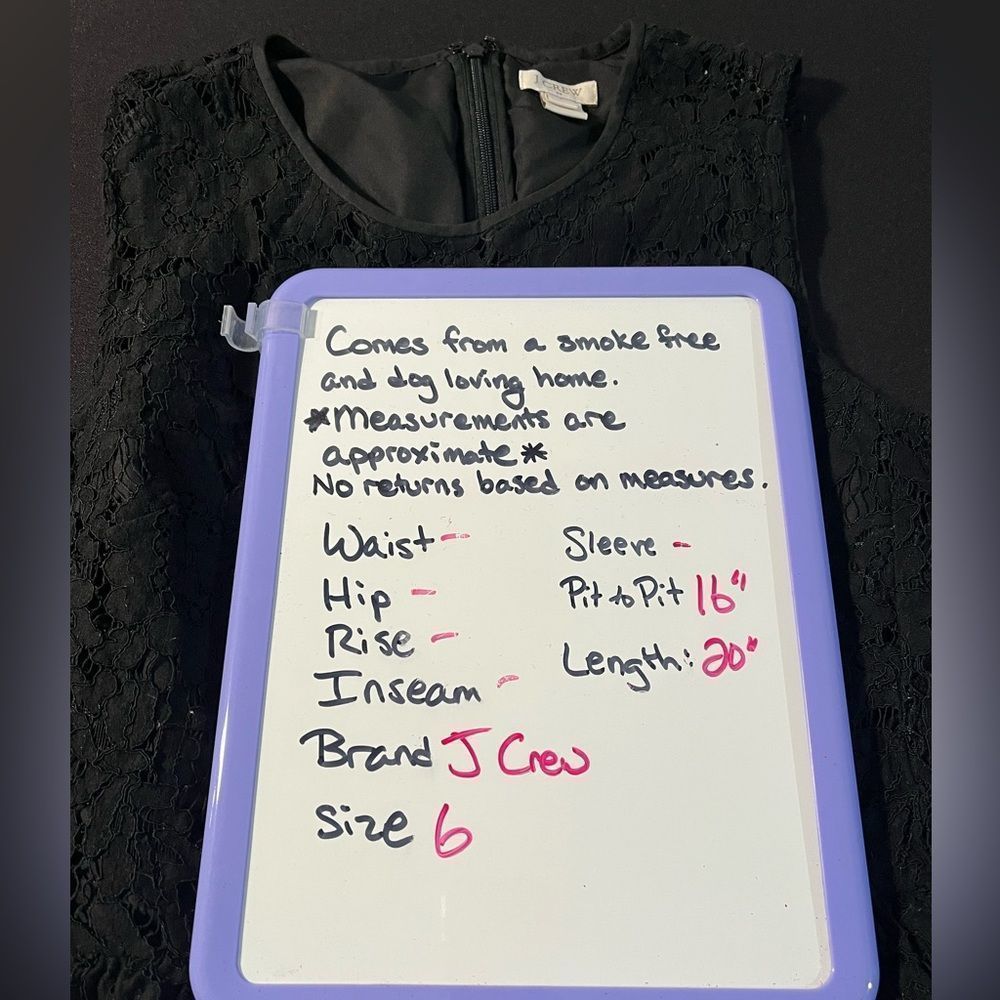 J.CREW
Comes from a smoke free
and dog loving home.
*Measurements are
approximate*
No returns based on measures.
Waist -
Sleeve -
Hip -
Pit to Pit 16"
Rise -
Length: 20"
Inseam -
Brand J Crew
Size 6